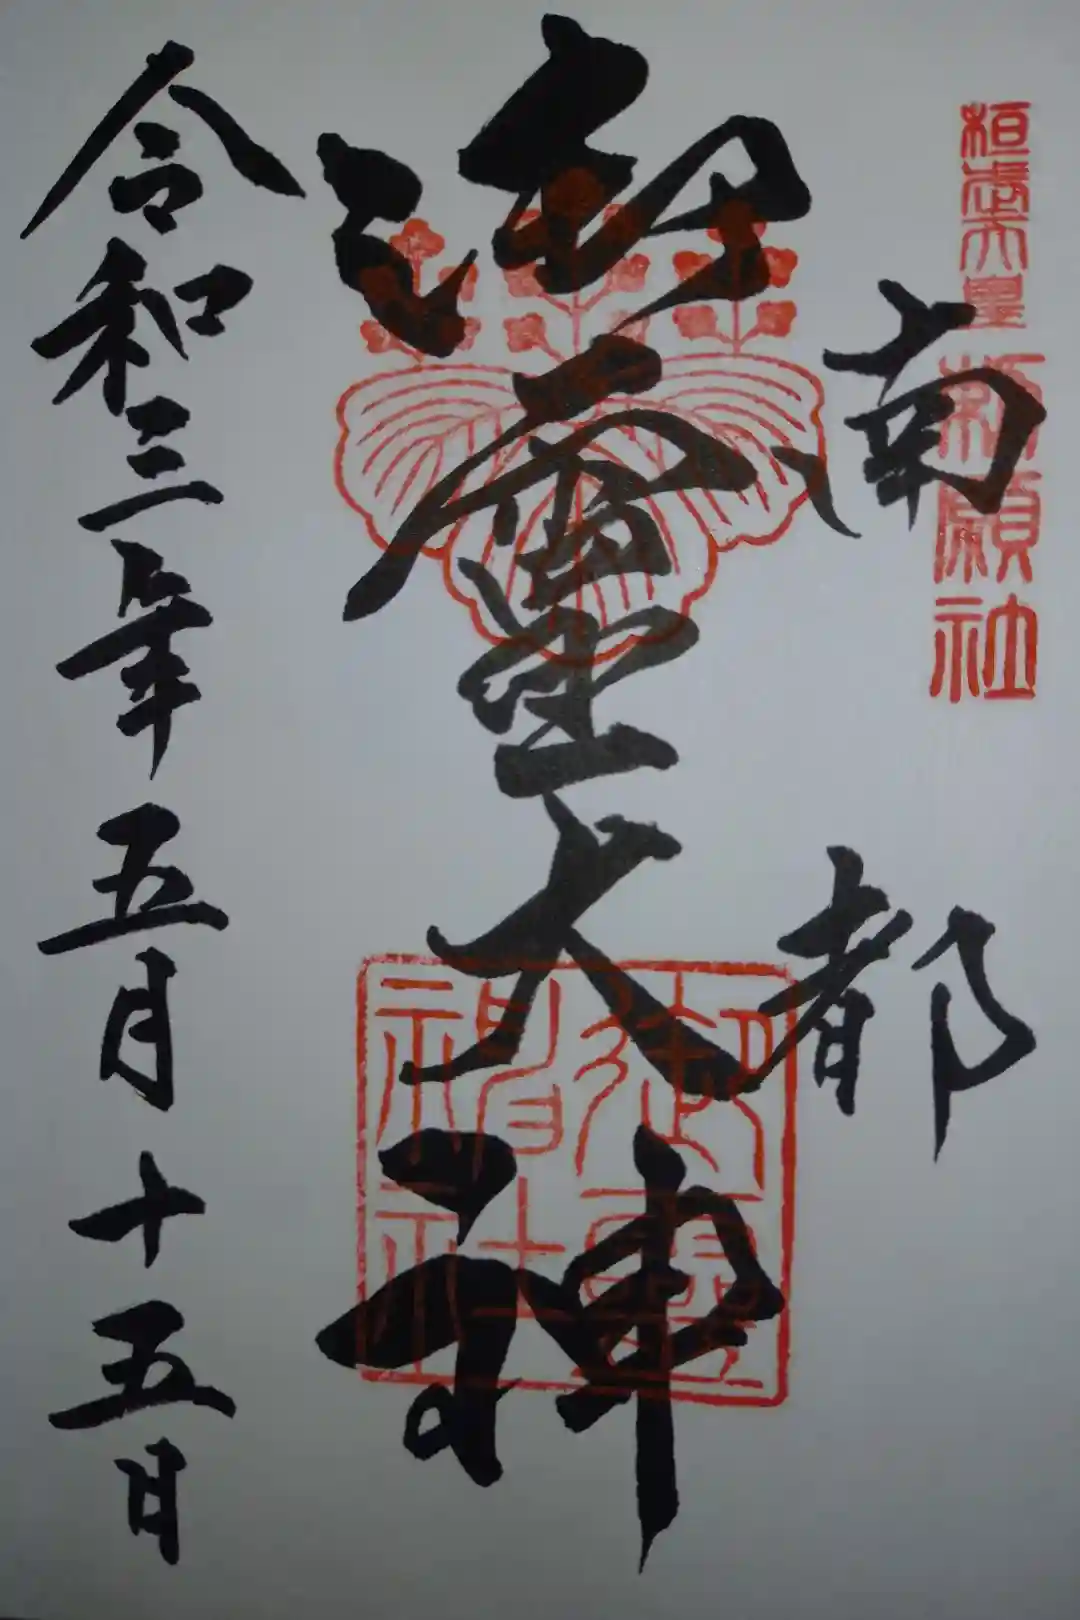 桓武天皇勅願社
南都
御霊大神
御霊神社
令和三年五月十五日